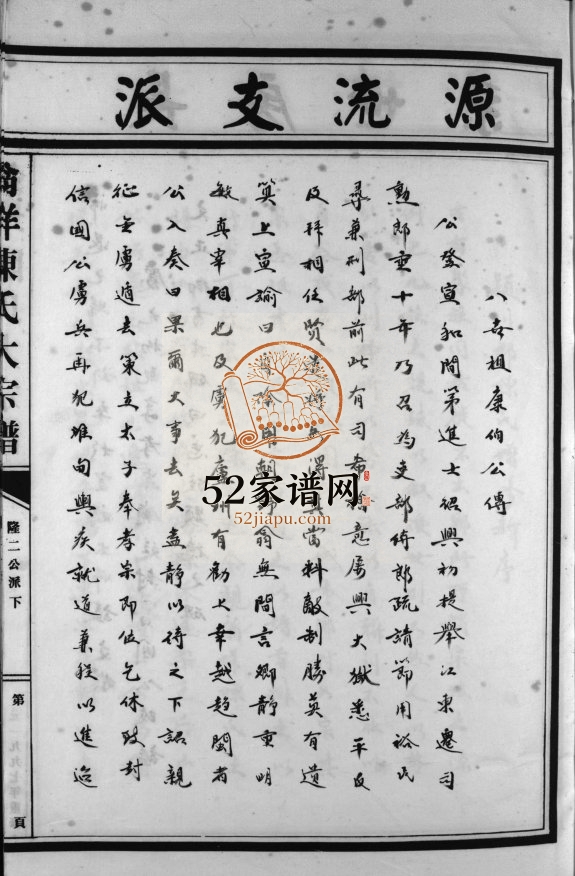 源流支派
八世祖康伯公傳
公登宣和間第進士紹興初提舉江東遷司
勲郎重十年乃召為吏部侍郎疏請節用裕民
尋兼刑部前此有司希檜意屡興大獄悉平反
及拜相任賢 得其當料敵制勝莫有遺
筭上宣諭曰 無間言卿静重明
敏真宰相也及虜犯廬州有勸上幸越趋閩者
公入奏曰果爾大事去矣盍静以待之下詔親
征金虜遁去策立太子奉孝宗即位乞休改封
信國公虜兵再犯淮甸輿疾就道兼程以進迨
陳氏大宗譜
隆二公派下
第 頁
52家谱网
52jiapu.com